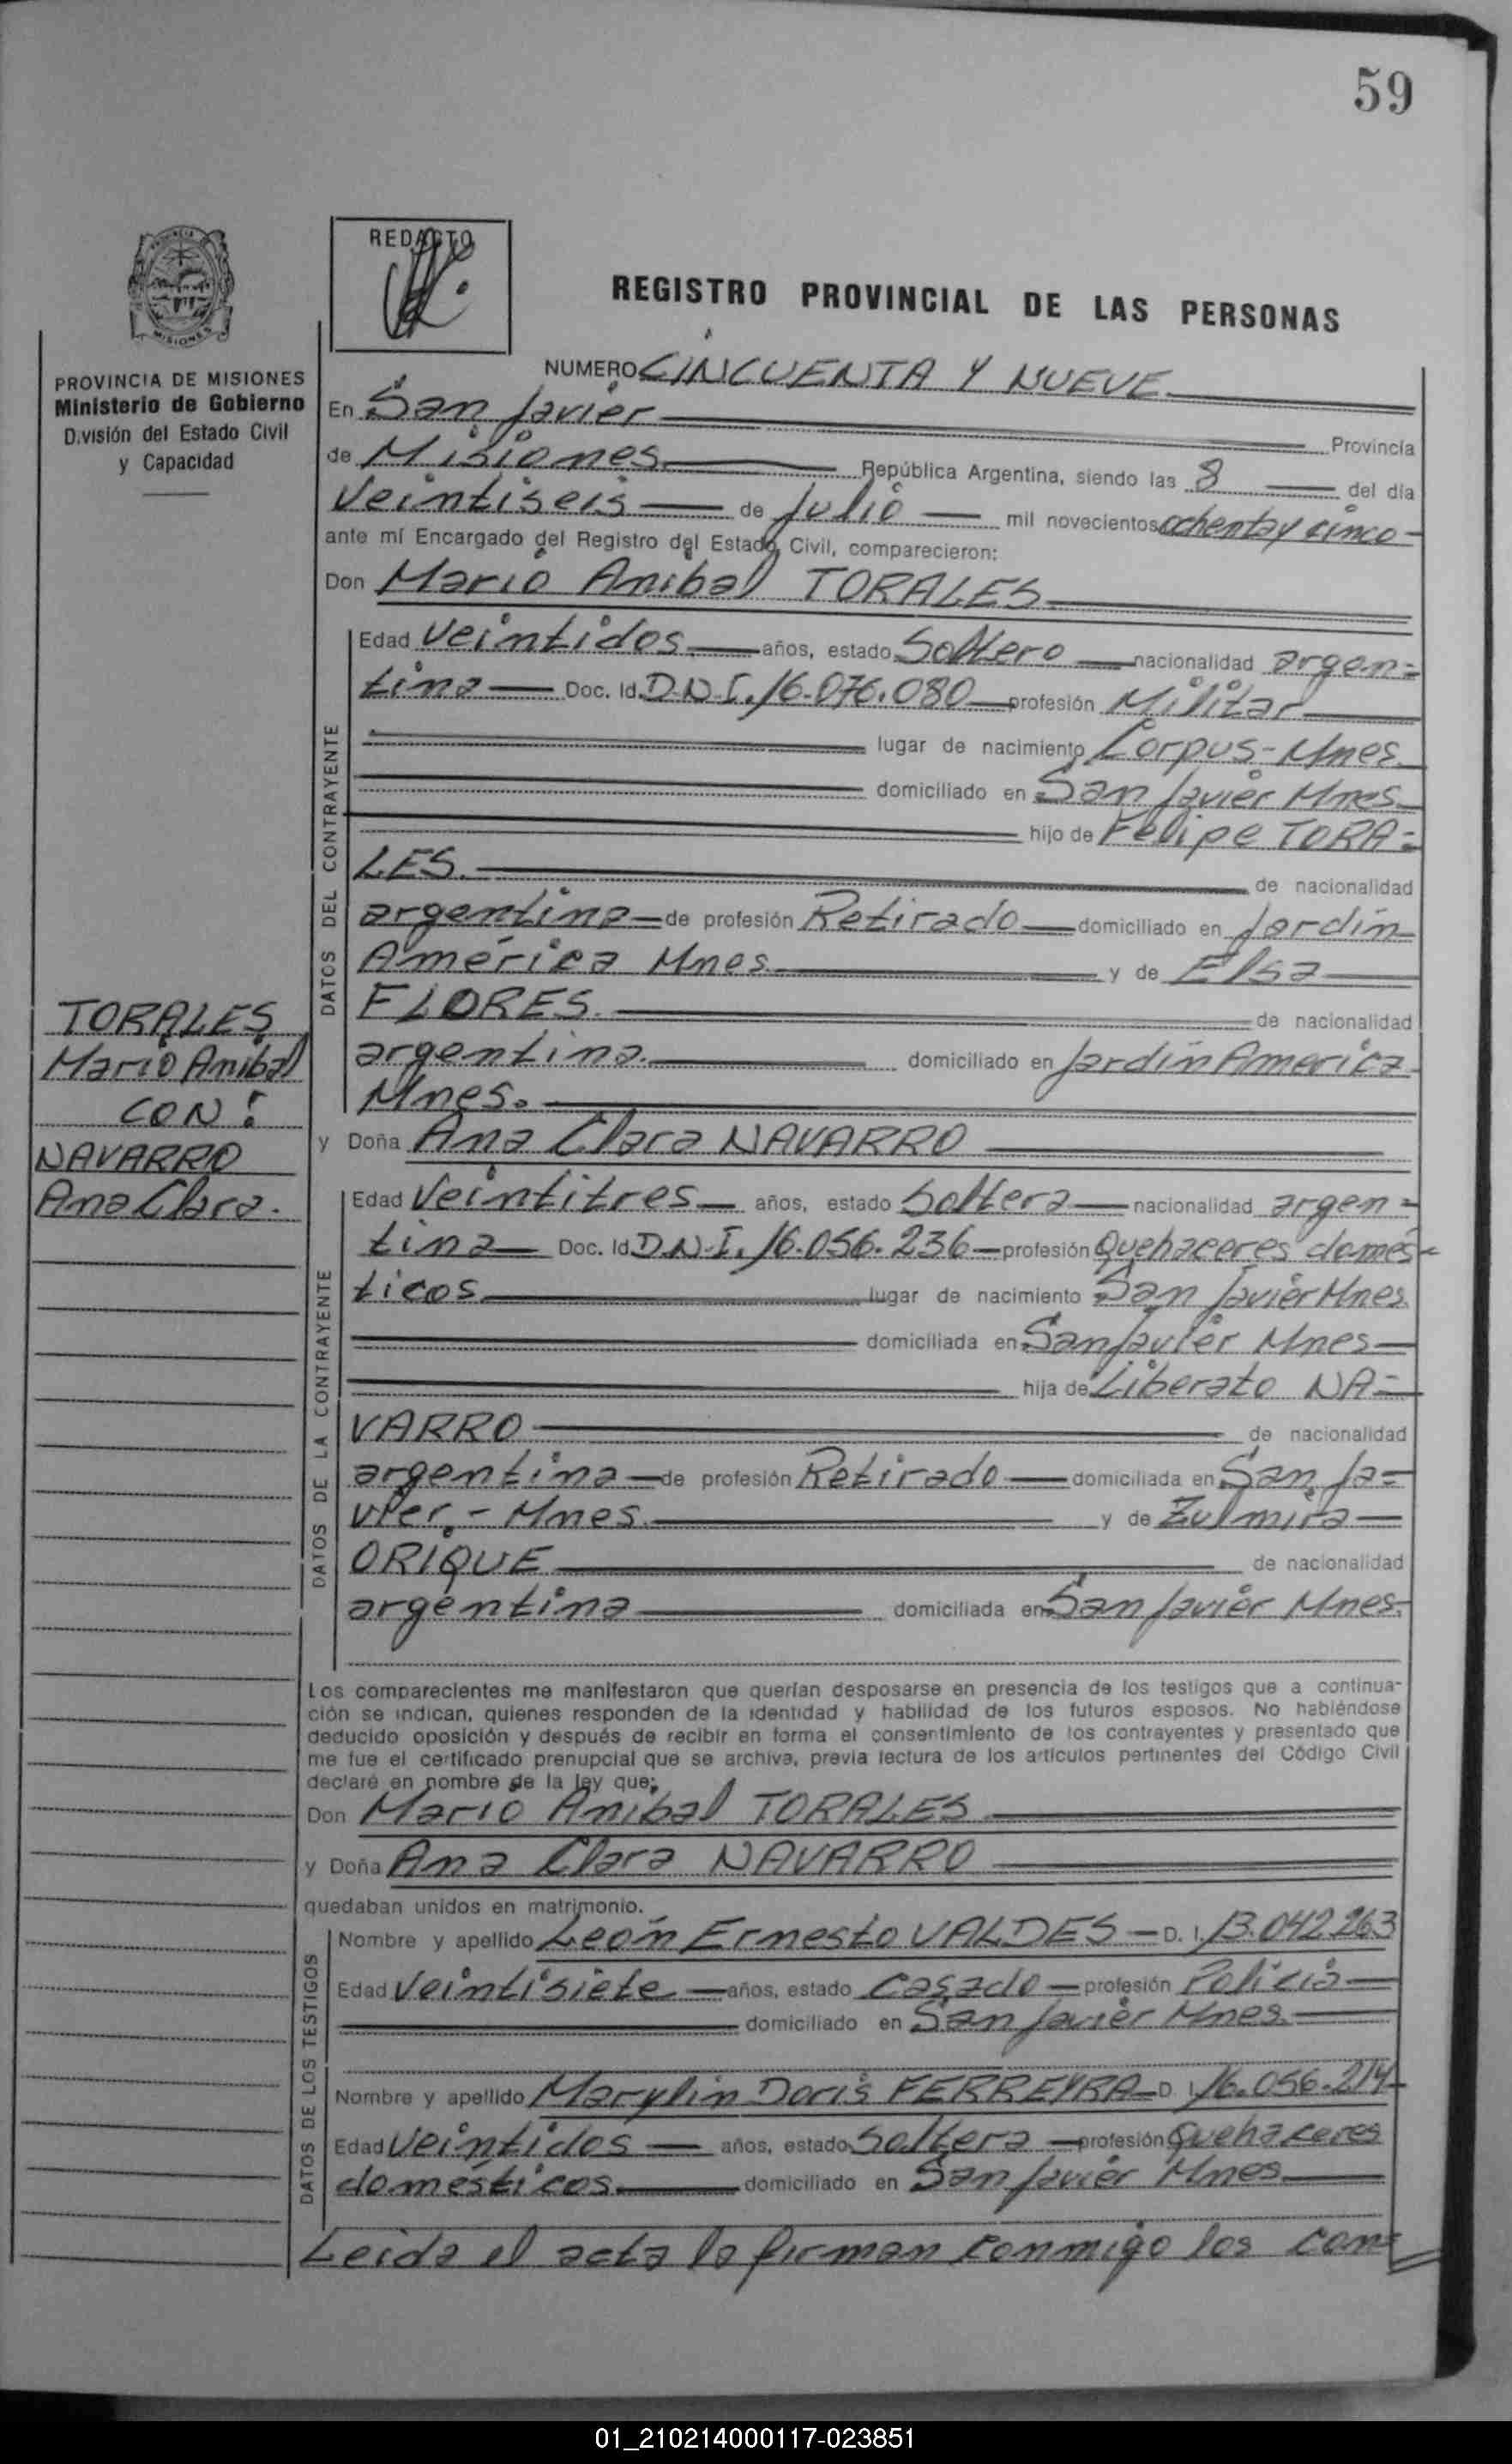 59
REDACTO
REGISTRO PROVINCIAL DE LAS PERSONAS
MISIONES
PROVINCIA DE MISIONES
Ministerio de Gobierno
División del Estado Civil
y Capacidad
NUMERO CINCUENTA Y NUEVE
En San Javier Provincia
de Misiones República Argentina, siendo las 8 del día
veintiseis de Julio mil novecientos ochenta y cinco
ante mí Encargado del Registro del Estado Civil, comparecieron:
Don Mario Anibal TORALES
DATOS DEL CONTRAYENTE
Edad veintidos años, estado Soltero nacionalidad argen=
tina Doc. Id. D.N.I. 16.076.080 profesión Militar
lugar de nacimiento Corpus-Mnes.
domiciliado en San Javier Mnes.
hijo de Felipe TORA=
LES. de nacionalidad
argentina de profesión Retirado domiciliado en Jardín
América Mnes. y de Elsa
FLORES. de nacionalidad
argentina. domiciliado en Jardín America
Mnes.
TORALES
Mario Anibal
CON:
NAVARRO
Ana Clara.
y Doña Ana Clara NAVARRO
DATOS DE LA CONTRAYENTE
Edad Veintitres años, estado Soltera nacionalidad argen=
tina Doc. Id. D.N.I. 16.056.236 profesión Quehaceres domés-
ticos lugar de nacimiento San Javier Mnes.
domiciliada en San Javier Mnes
hija de Liberato NA=
VARRO de nacionalidad
argentina de profesión Retirado domiciliada en San Ja=
vier.- Mnes. y de Zulmira
ORIQUE de nacionalidad
argentina domiciliada en San Javier Mnes.
Los comparecientes me manifestaron que querían desposarse en presencia de los testigos que a continua-
ción se indican, quienes responden de la identidad y habilidad de los futuros esposos. No habiéndose
deducido oposición y después de recibir en forma el consentimiento de los contrayentes y presentado que
me fue el certificado prenupcial que se archiva, previa lectura de los artículos pertinentes del Código Civil
declaré en nombre de la ley que:
Don Mario Anibal TORALES
y Doña Ana Clara NAVARRO
quedaban unidos en matrimonio.
DATOS DE LOS TESTIGOS
Nombre y apellido León Ernesto VALDES D. I. 13.042.263
Edad Veintisiete años, estado casado profesión Policia
domiciliado en San Javier Mnes.
Nombre y apellido Marylin Doris FERREYRA D. I. 16.056.214
Edad Veintidos años, estado Soltera profesión Quehaceres
domésticos. domiciliado en San Javier Mnes.
Leida el acta la firman conmigo los con=
01_210214000117-023851